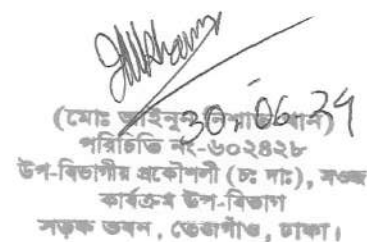 30.06.24
(মোঃ আইনুন নিশাত খান)
পরিচিতি নং-৬০২৪২৮
উপ-বিভাগীয় প্রকৌশলী (চঃ দাঃ), সওজ
কার্যক্রম উপ-বিভাগ
সড়ক ভবন, তেজগাঁও, ঢাকা।